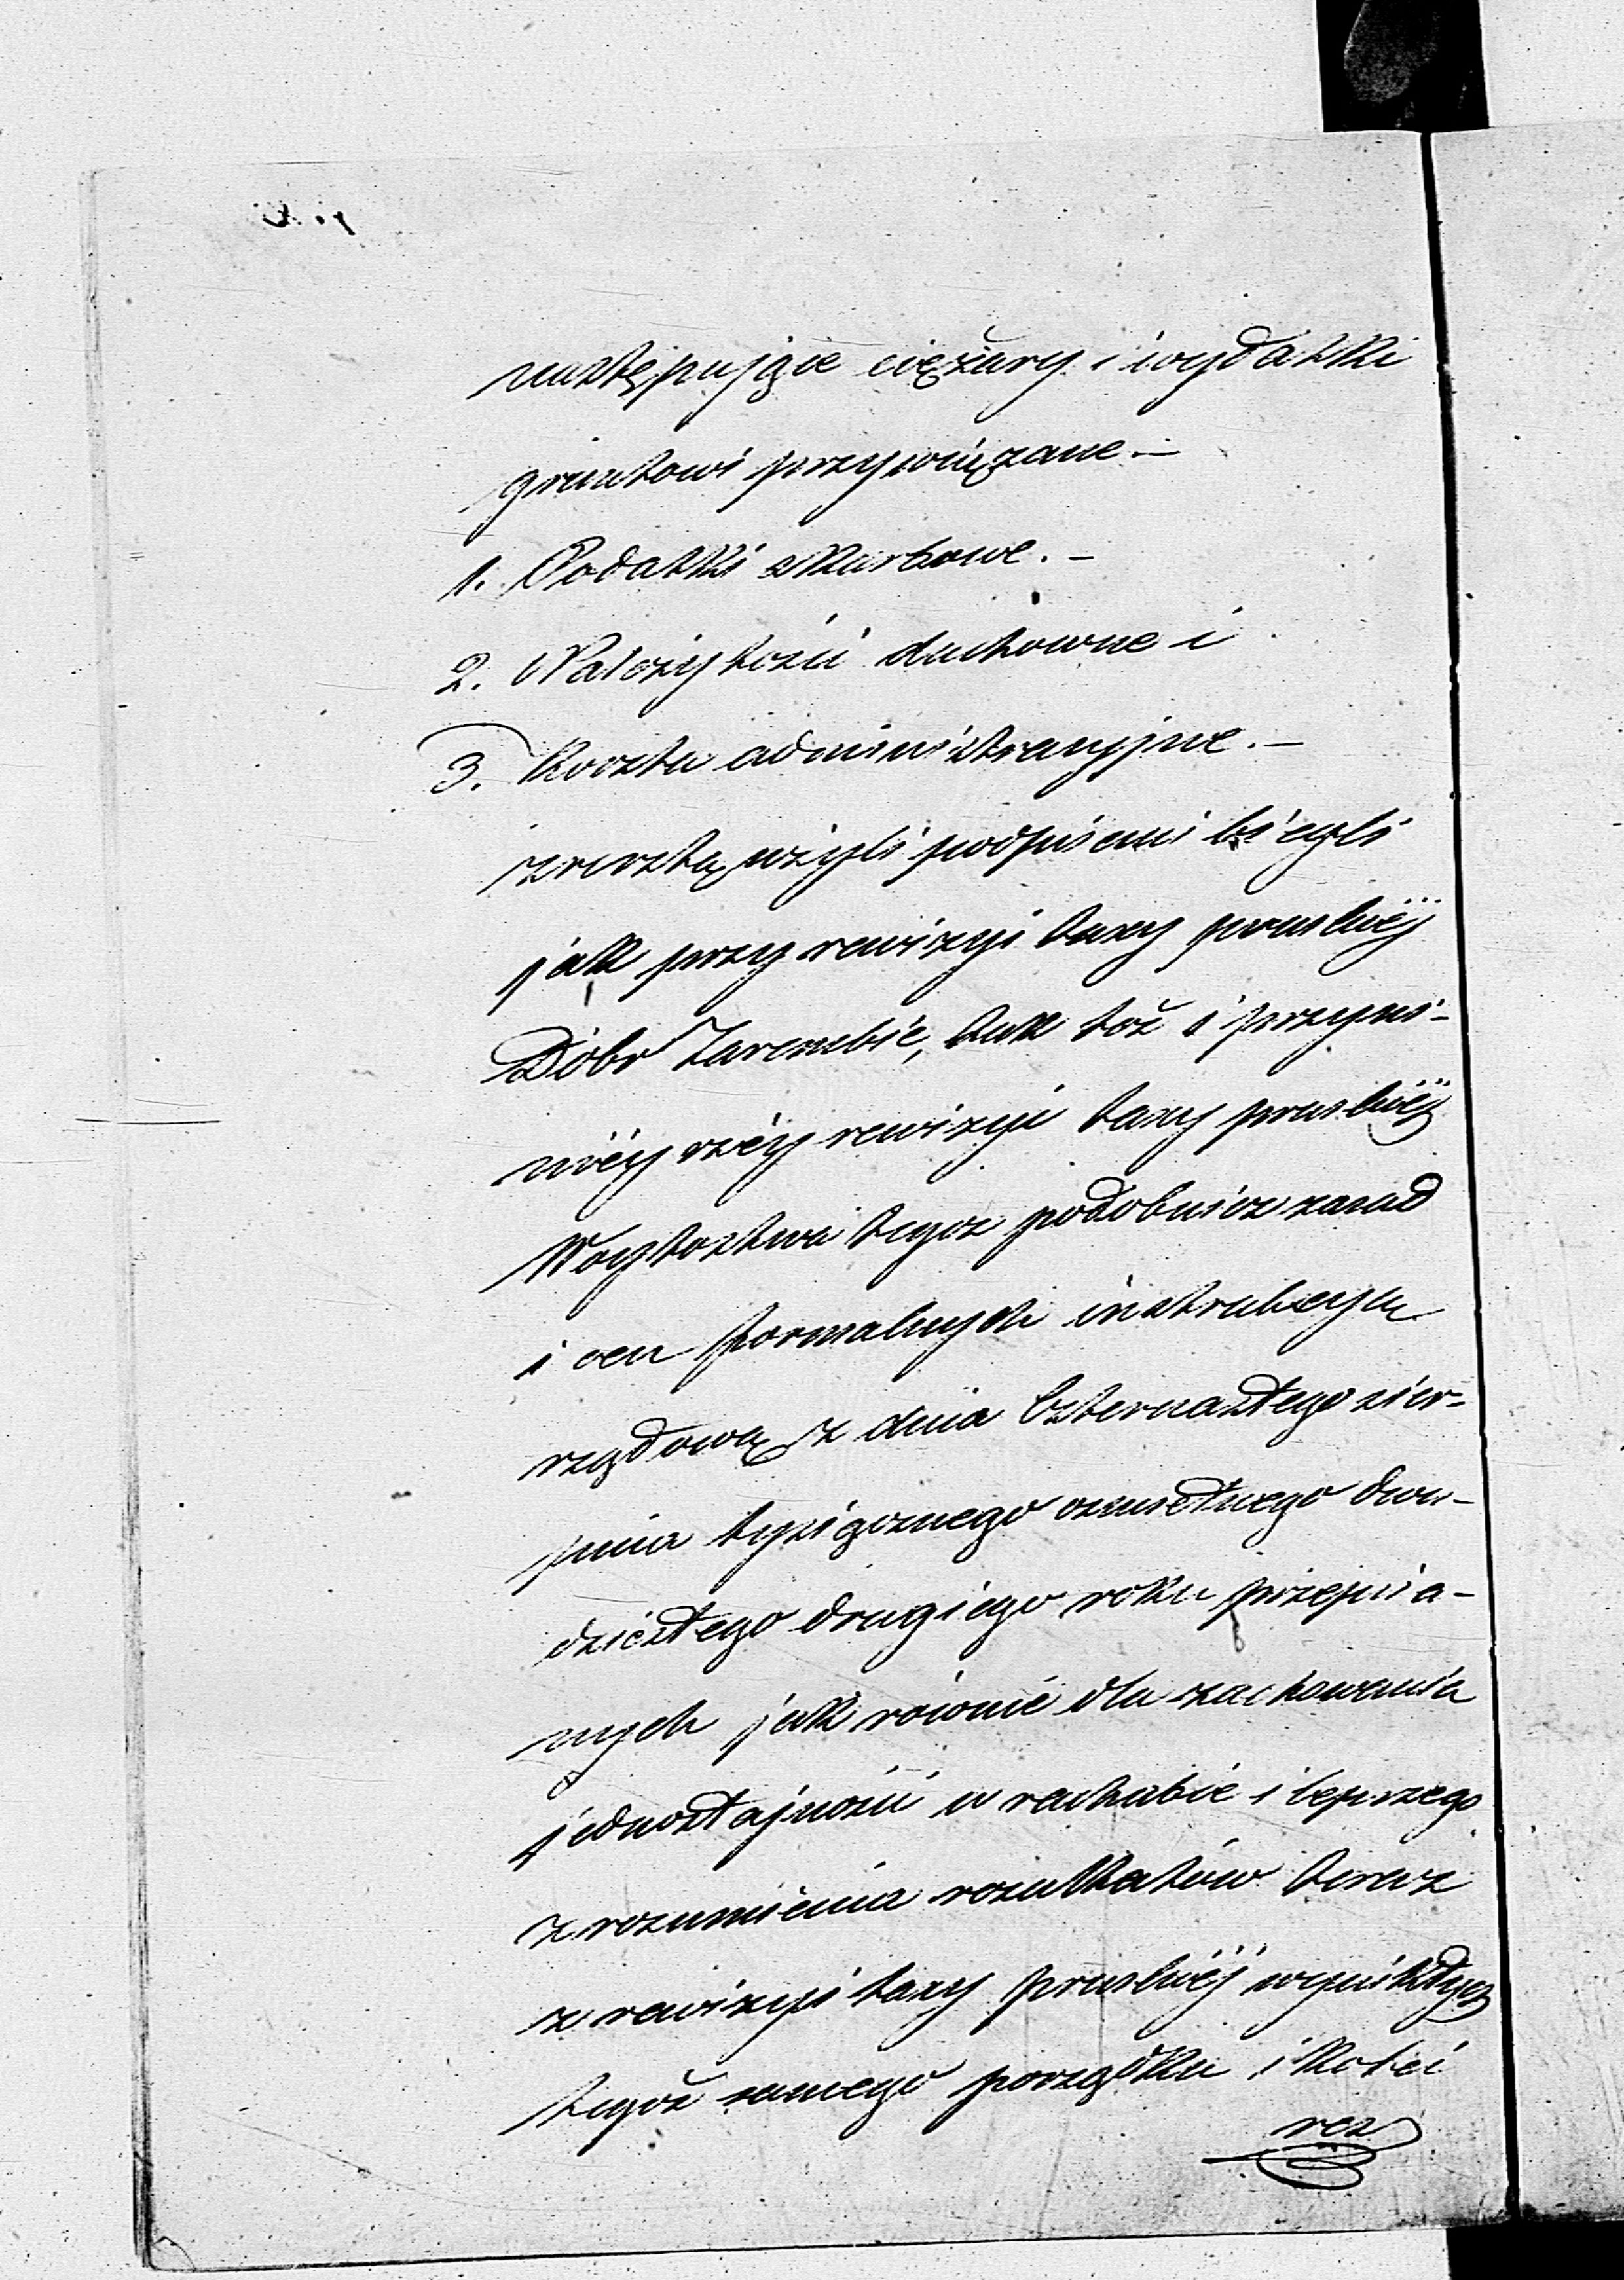 następujące ciężary i wydatki
gruntowi przywiązane.—
1. Podatki skarbowe.—
2. Należytości duchowne i
3. Koszta administracyjne.—
zresztą użyli podpisani biegli
jak przy rewizyi taxy pruskiéj
Dóbr Zarembie, tak też i przyni-
niéyszéy rewizyi taxy pruskiéj
Woytostwa tychże podobnież zasad
i cen formalnych instrukcyą
rządową z dnia Czternastego sier-
pnia tysiącznego osmsetnego dwu-
dziestego drugiego roku przepisa-
nych jak równie dla zachowania
jednostajności w rachubie i lepszego
zrozumienia rezultatów teraz
z rewizyi taxy pruskiéj wynikłych
tegoż samego porządku i kolei